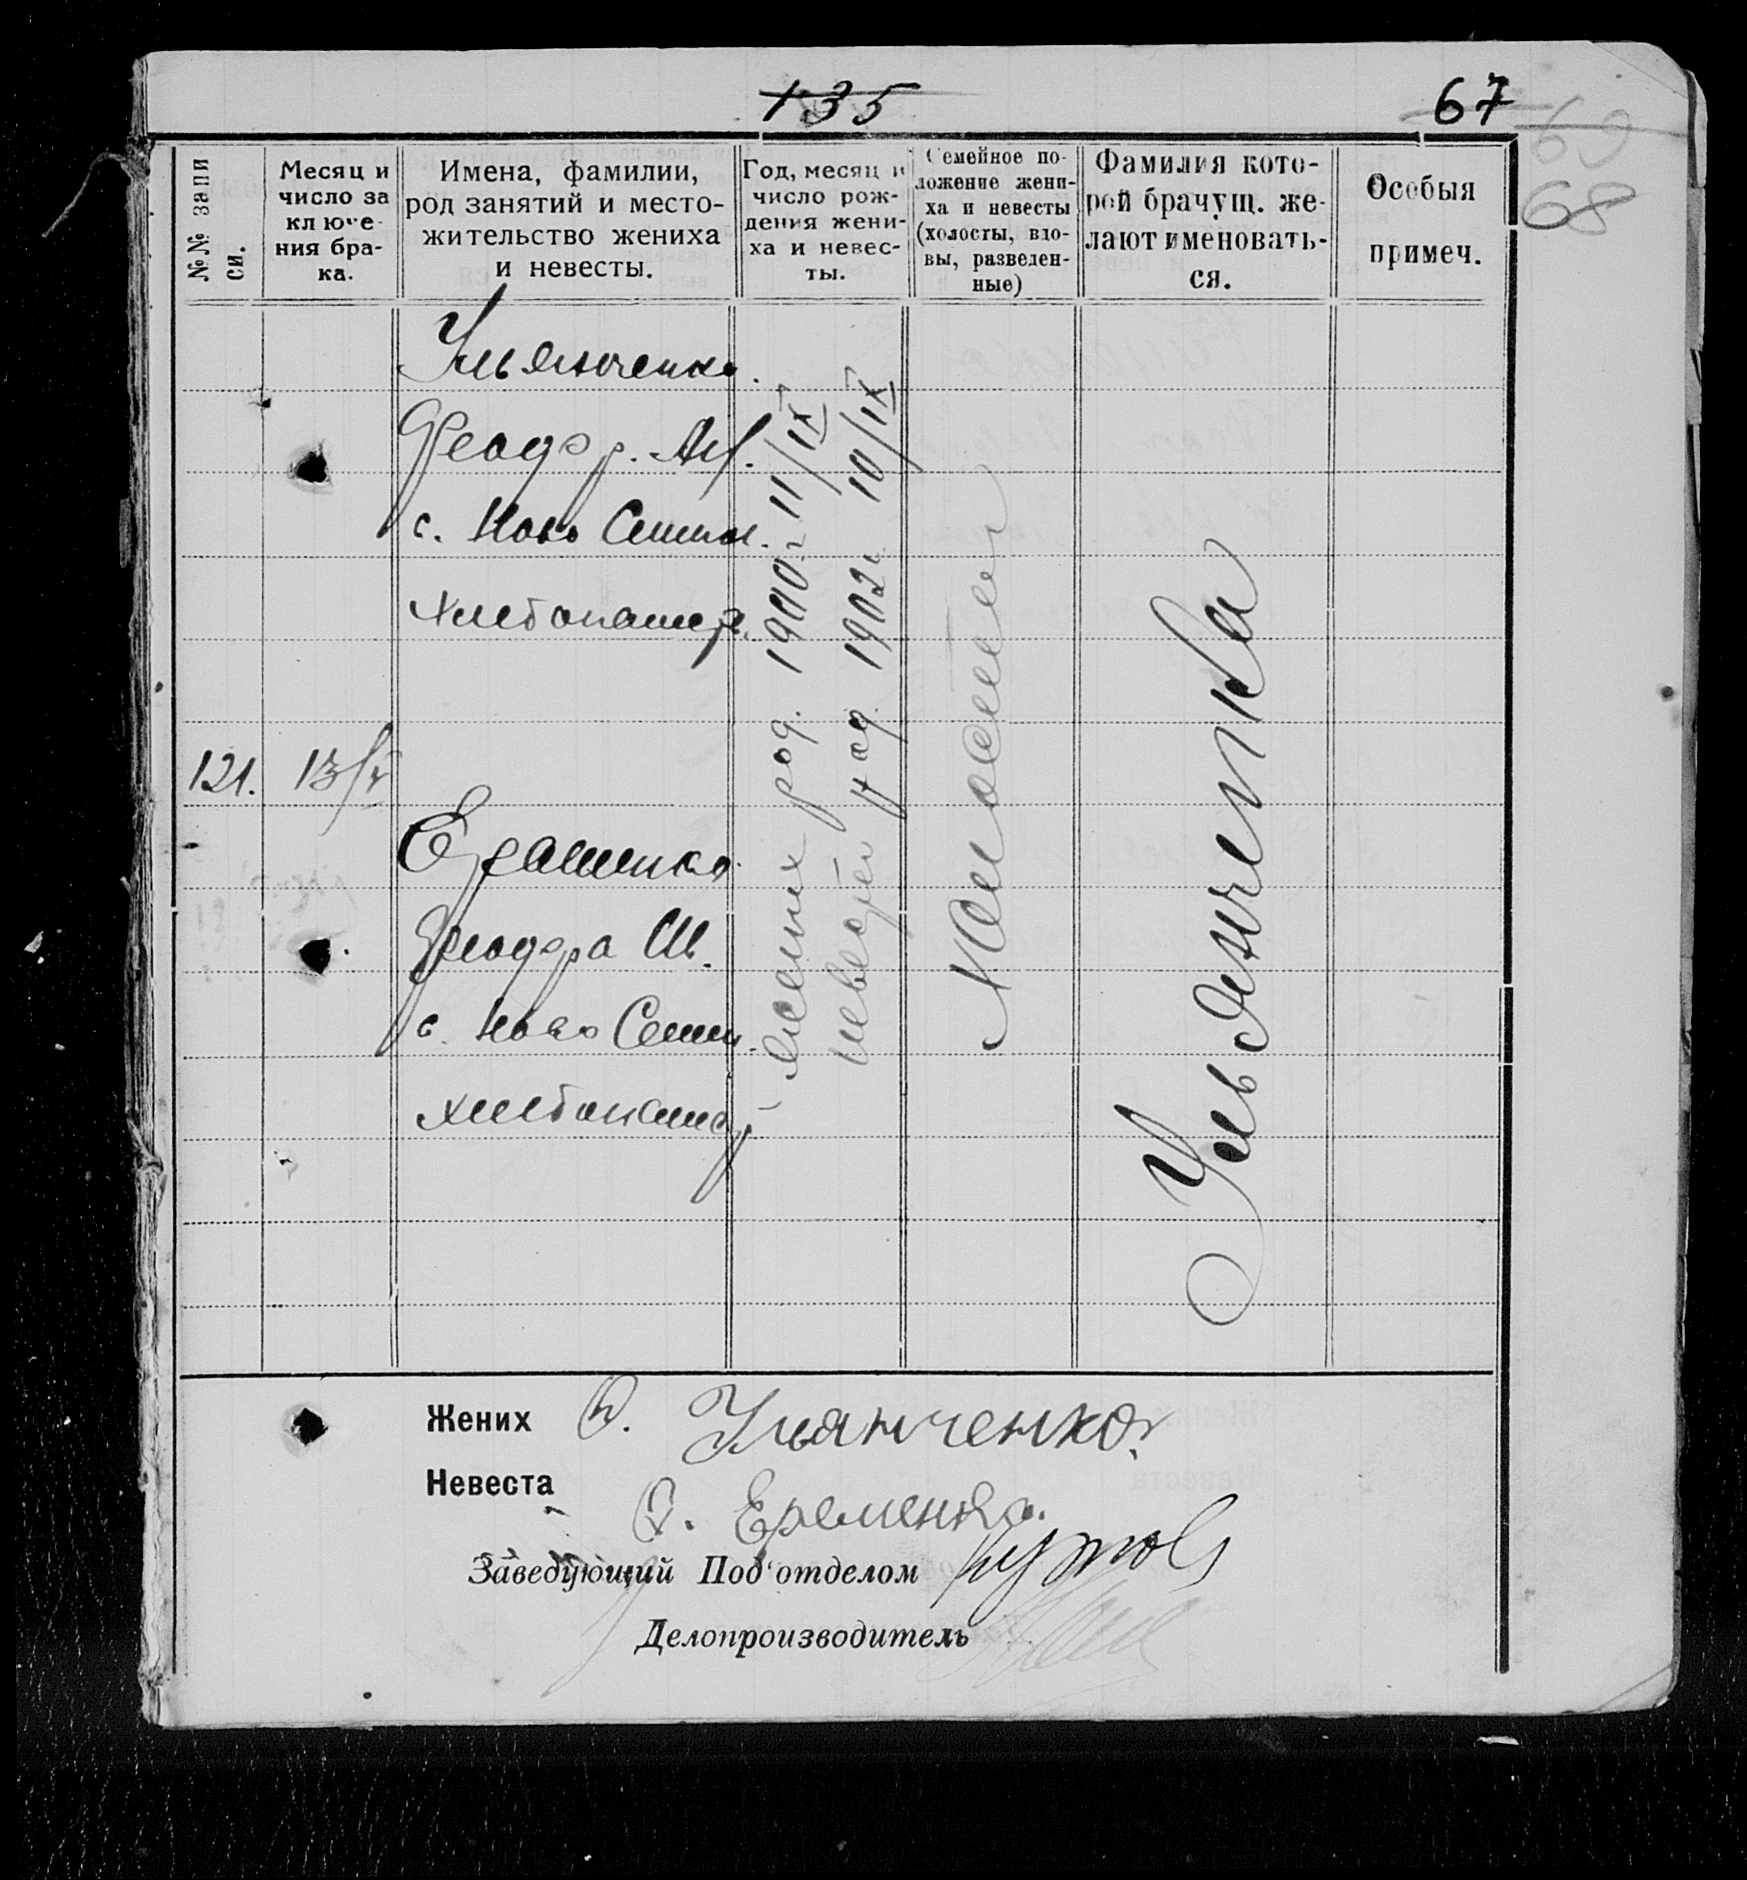 135
67
60
68
№№ запи
си.
Месяц и
число за
ключе-
ния бра-
ка.
Имена, фамилии,
род занятий и место-
жительство жениха
и невесты.
Год, месяц и
число рож-
дения жени-
ха и невес-
ты.
Семейное по-
ложение жени-
ха и невесты
(холосты, вдо-
вы, разведен-
ные)
Фамилия кото-
рой брачущ. же-
лают именовать-
ся.
Особыя
примеч.
Ульянченко
Феодор.
с. Ново
хлебопашер.
121. 13/V
Феодора
с. Ново
хлебопаш
жених род. 1900 г. 11/IX
невеста род 1902 г. 10/IX
Ульянченко
Жених Ф. Ульянченко
Невеста
Ф. Еременко.
Заведующий Под'отделом
Делопроизводитель